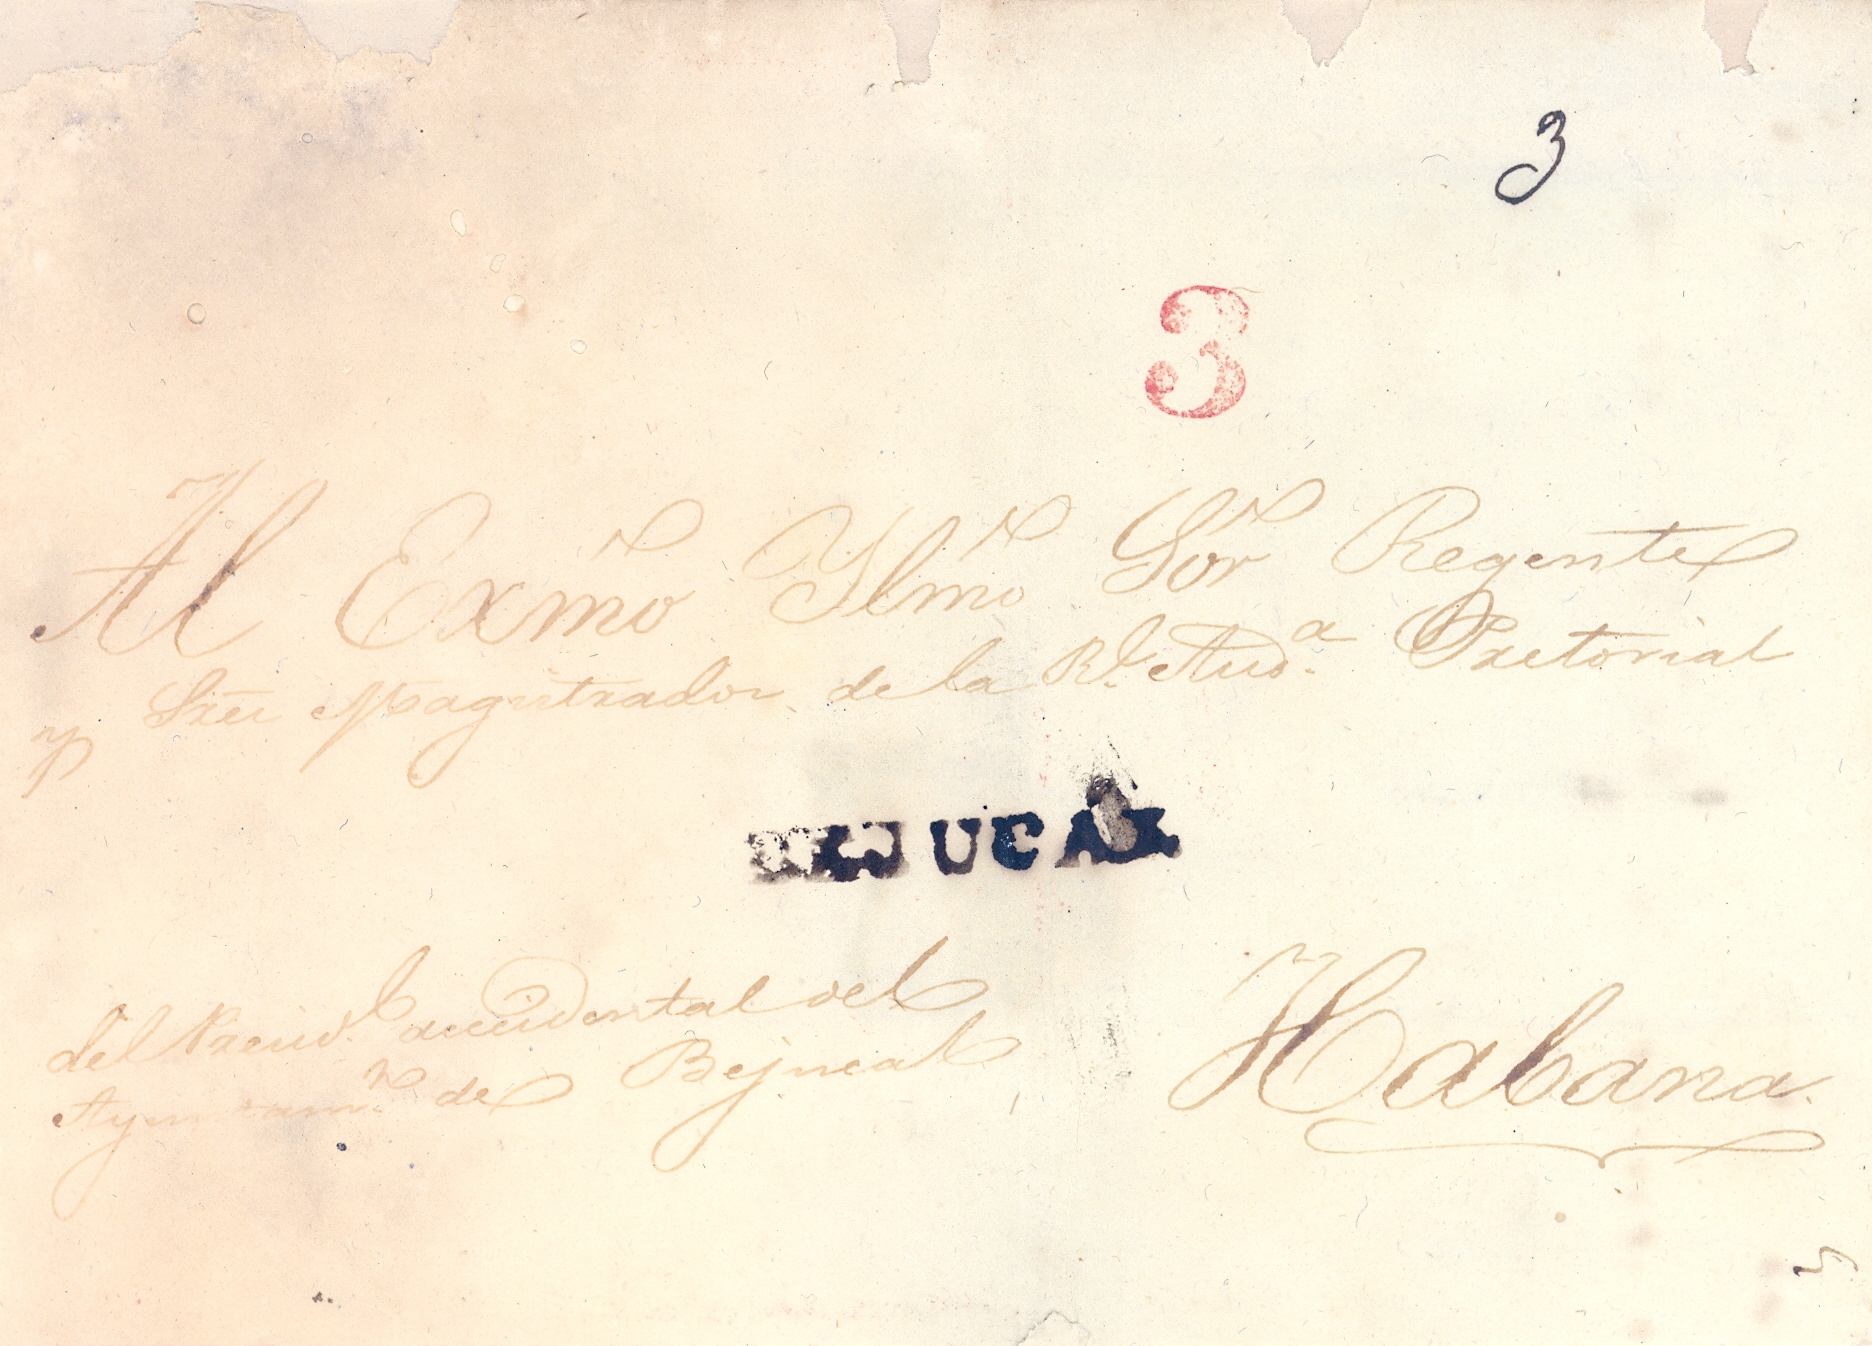 3
3
Al Exmo Ylmo Sor Regente
y Sres Magistrados de la Rl. Auda. Pretorial
BEJUCAL
del Presidte. accidental del
Ayuntamto. de Bejucal
Habana.